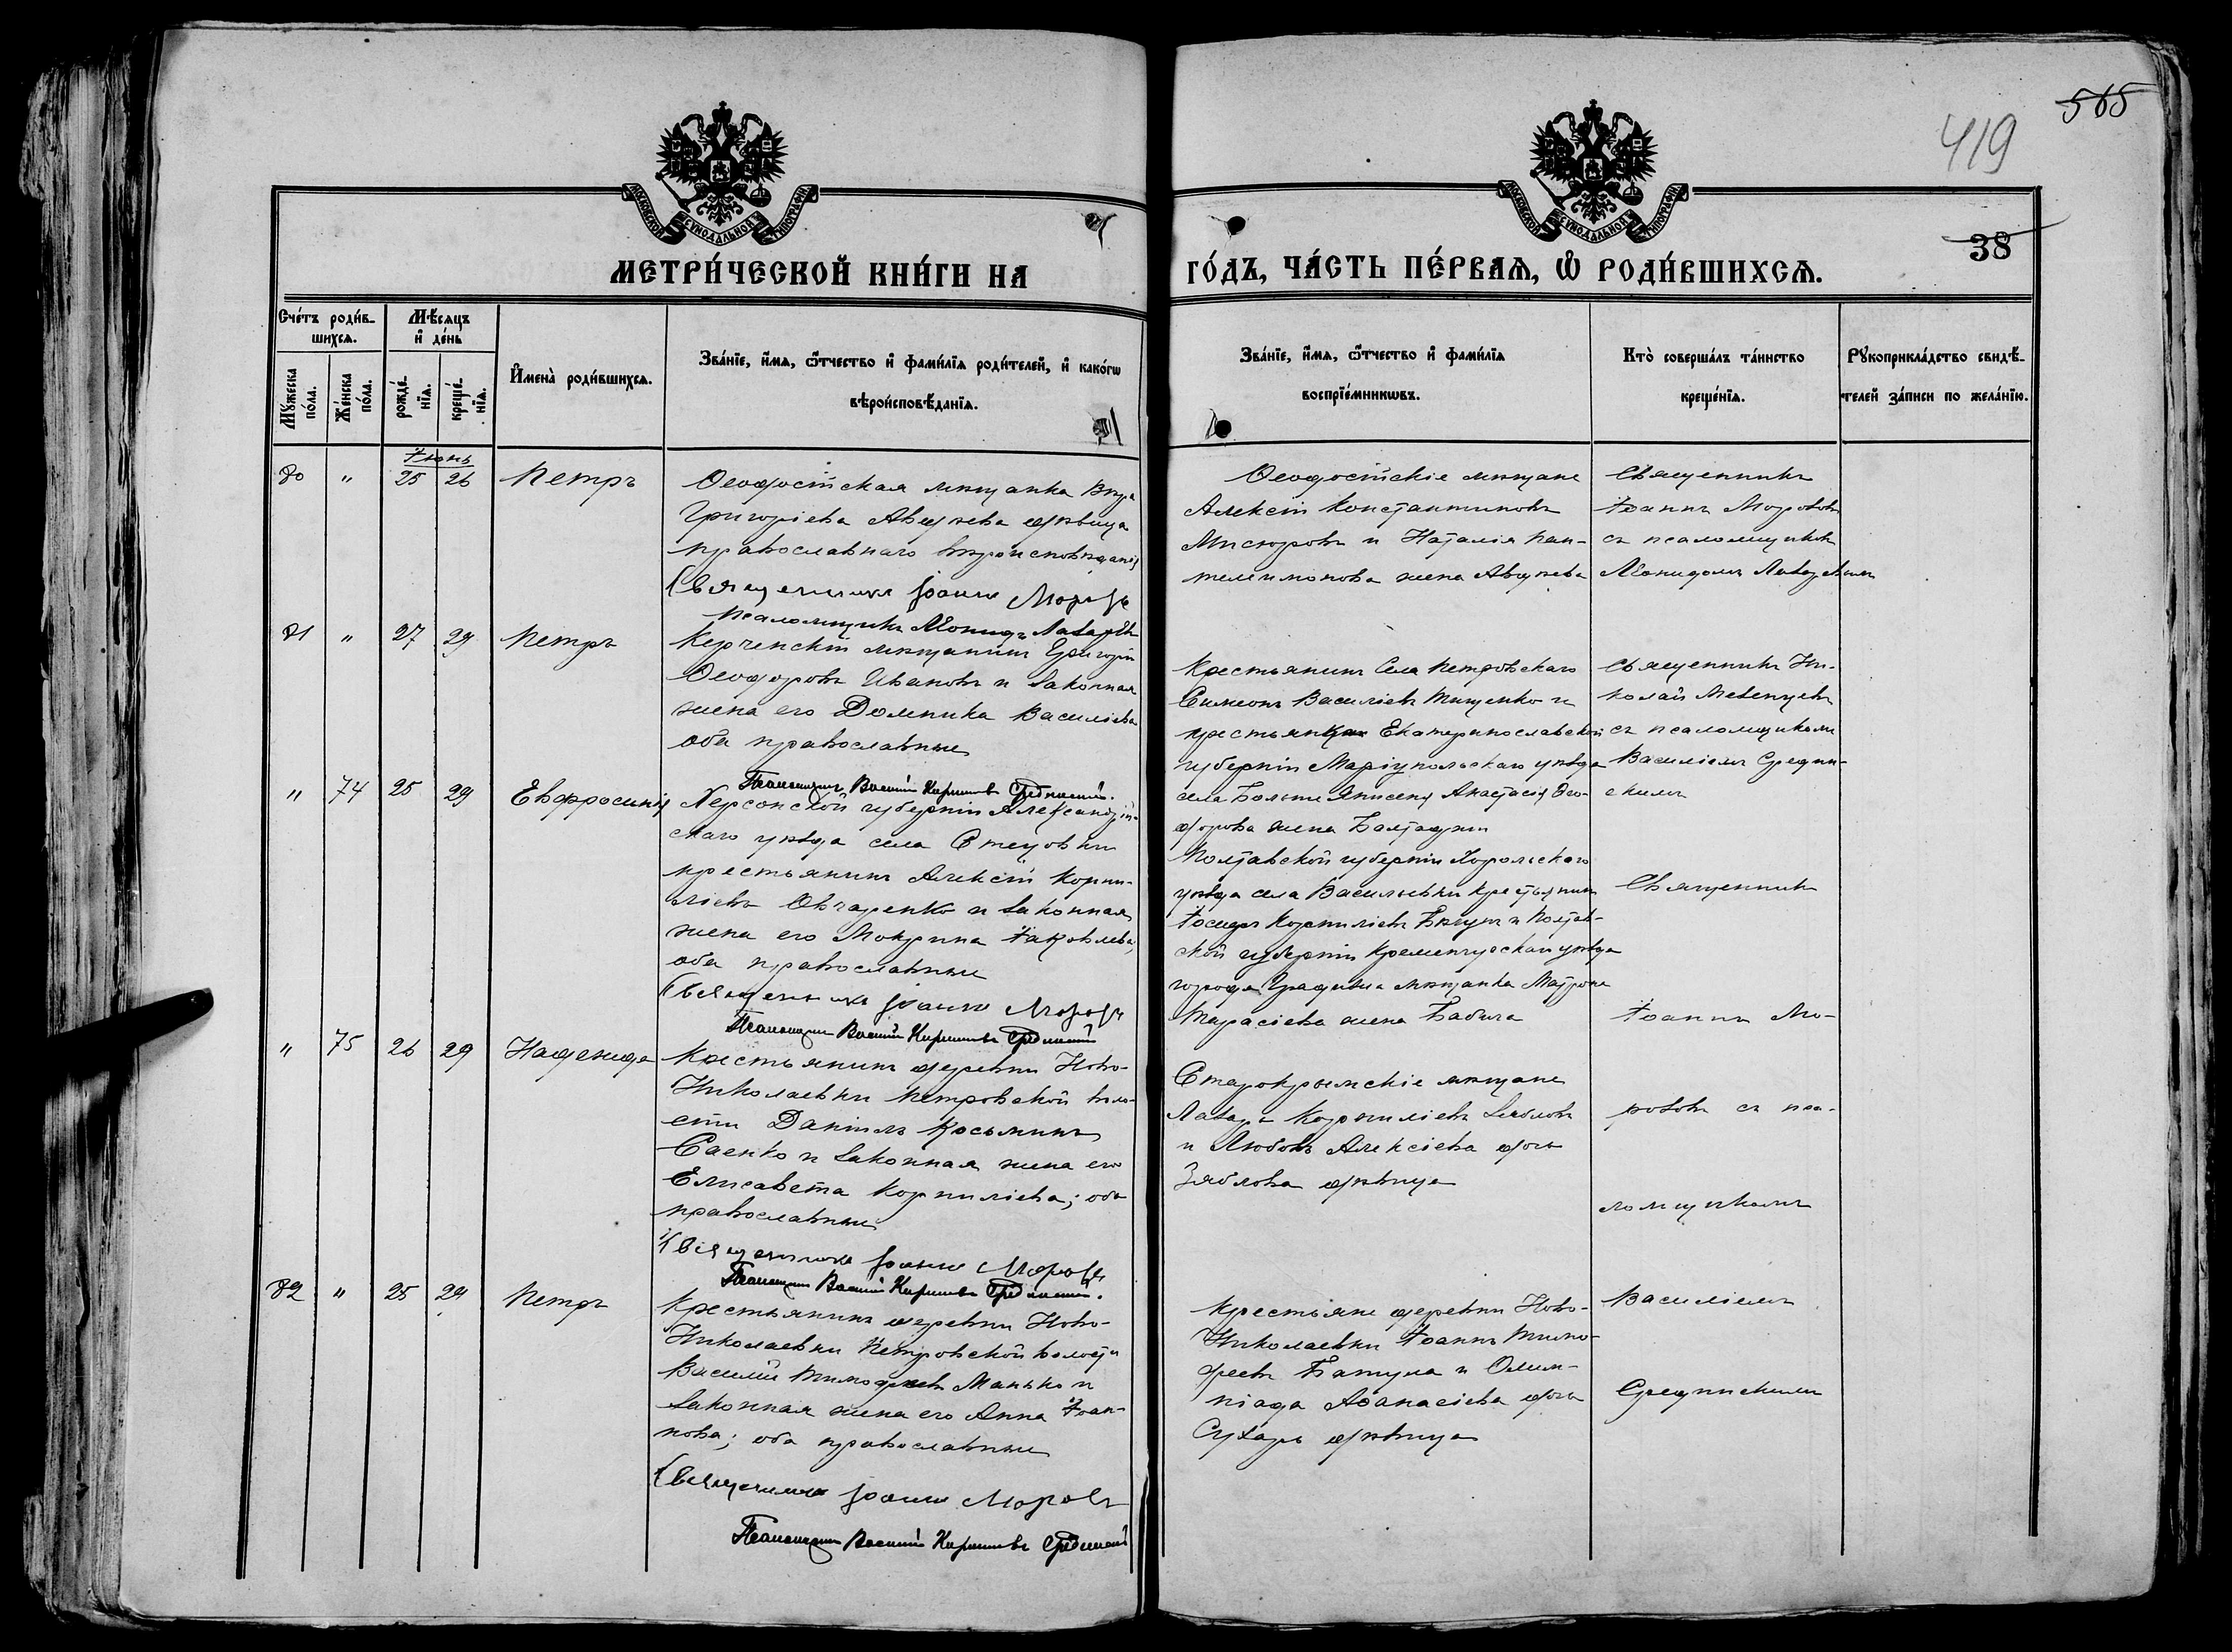 565
419
38
МОСКОВСКОЙ СѴНОДАЛЬНОЙ ТИПОГРАФІИ
МОСКОВСКОЙ СѴНОДАЛЬНОЙ ТИПОГРАФІИ
МЕТРИ́ЧЕСКОЙ КНИ́ГИ НА
ГО́ДЪ, ЧА́СТЬ ПЕ́РВАѦ, Ѡ҆ РОДИ́ВШИХСѦ.
Сче́тъ роди́в-
шихсѧ.
Мѣ́сѧцъ
и҆ де́нь
Мꙋ́жеска
по́ла.
Же́нска
по́ла.
рожде́-
нїѧ.
креще́-
нїѧ.
И҆мена̀ роди́вшихсѧ.
Зва́нїе, и҆́мѧ, ѻ҆́тчество и҆ фами́лїѧ роди́телей, и҆ како́гѡ
вѣроисповѣ́данїѧ.
Зва́нїе, и҆́мѧ, ѻ҆́тчество и҆ фами́лїѧ
воспрїе́мникѡвъ.
Кто̀ соверша́лъ та́инство
креще́нїѧ.
Рꙋкоприкла́дство свидѣ́-
телей за́писи по жела́нїю.
Іюнь
80 " 25 26 Петръ
Ѳеодосійская мѣщанка Вѣра
Григорьева Авдѣева дѣвица
православнаго вѣроисповѣданія
Священникъ Іоаннъ Морозов
Псаломщикъ Леонидъ Лазаревъ
Ѳеодосійскіе мѣщане
Алексій Константиновъ
Мисюровъ и Наталія Пан-
телимонова жена Авдѣева
Священникъ
Іоаннъ Морозовъ
съ псаломщикомъ
Леонидомъ Лазаревымъ
81 " 27 29 Петръ
Керченскій мѣщанинъ Григорій
Ѳеодоровъ Ивановъ и законная
жена его Домника Василіева
оба православные
Псаломщикъ Василій Кирилловъ Срединскій.
Крестьянинъ Села Петровскаго
Симеонъ Василіевъ Тищенко и
крестьянка Екатеринославской
губерніи Маріупольскаго уѣзда
села Большаго Янисоля Анастасія Ѳео-
дорова жена
Священникъ Ни-
колай Мезенцевъ
съ псаломщикомъ
Василіемъ Средин-
скимъ
" 74 25 29 Евфросинія
Херсонской губерніи Александрій-
скаго уѣзда села Стецовки
крестьянинъ Алексій Корни-
ліевъ Овчаренко и законная
жена его Мокрина Іаковлева,
оба православные
Священникъ Іоаннъ Морозов
Псаломщикъ Василій Кирилловъ Срединскій
Полтавской губерніи Хорольскаго
уѣзда села Васильевки крестьянинъ
Іосифъ Корниліевъ и Полтав-
ской губерніи Кременчугскаго уѣзда
города Градижска мѣщанка Матрона
Тарасіева жена Бабича
Священникъ
Іоаннъ Мо-
" 75 26 29 Надежда
Крестьянинъ деревни Ново-
Николаевки Петровской воло-
сти Даніилъ Косьминъ
Саенко и законная жена его
Елисавета Корниліева; оба
православные
Священникъ Іоаннъ Морозов
Псаломщикъ Василій Кирилловъ Срединскій.
Старокрымскіе мѣщане
Лазарь Корниліевъ Зябловъ
и Любовь Алексіева дочь
Зяблова дѣвица
розовъ съ пса-
ломщикомъ
82 " 25 29 Петръ
Крестьянинъ деревни Ново-
Николаевки Петровской волости
Василій Тимоѳеевъ Манько и
законная жена его Анна Іоан-
нова; оба православные
Священникъ Іоаннъ Морозовъ
Псаломщикъ Василій Кирилловъ Срединскій
Крестьяне деревни Ново-
Николаевки Іоаннъ Тимо-
феевъ и Олим-
піада Аѳанасіева дочь
Сухарь дѣвица
Василіемъ
Срединскимъ